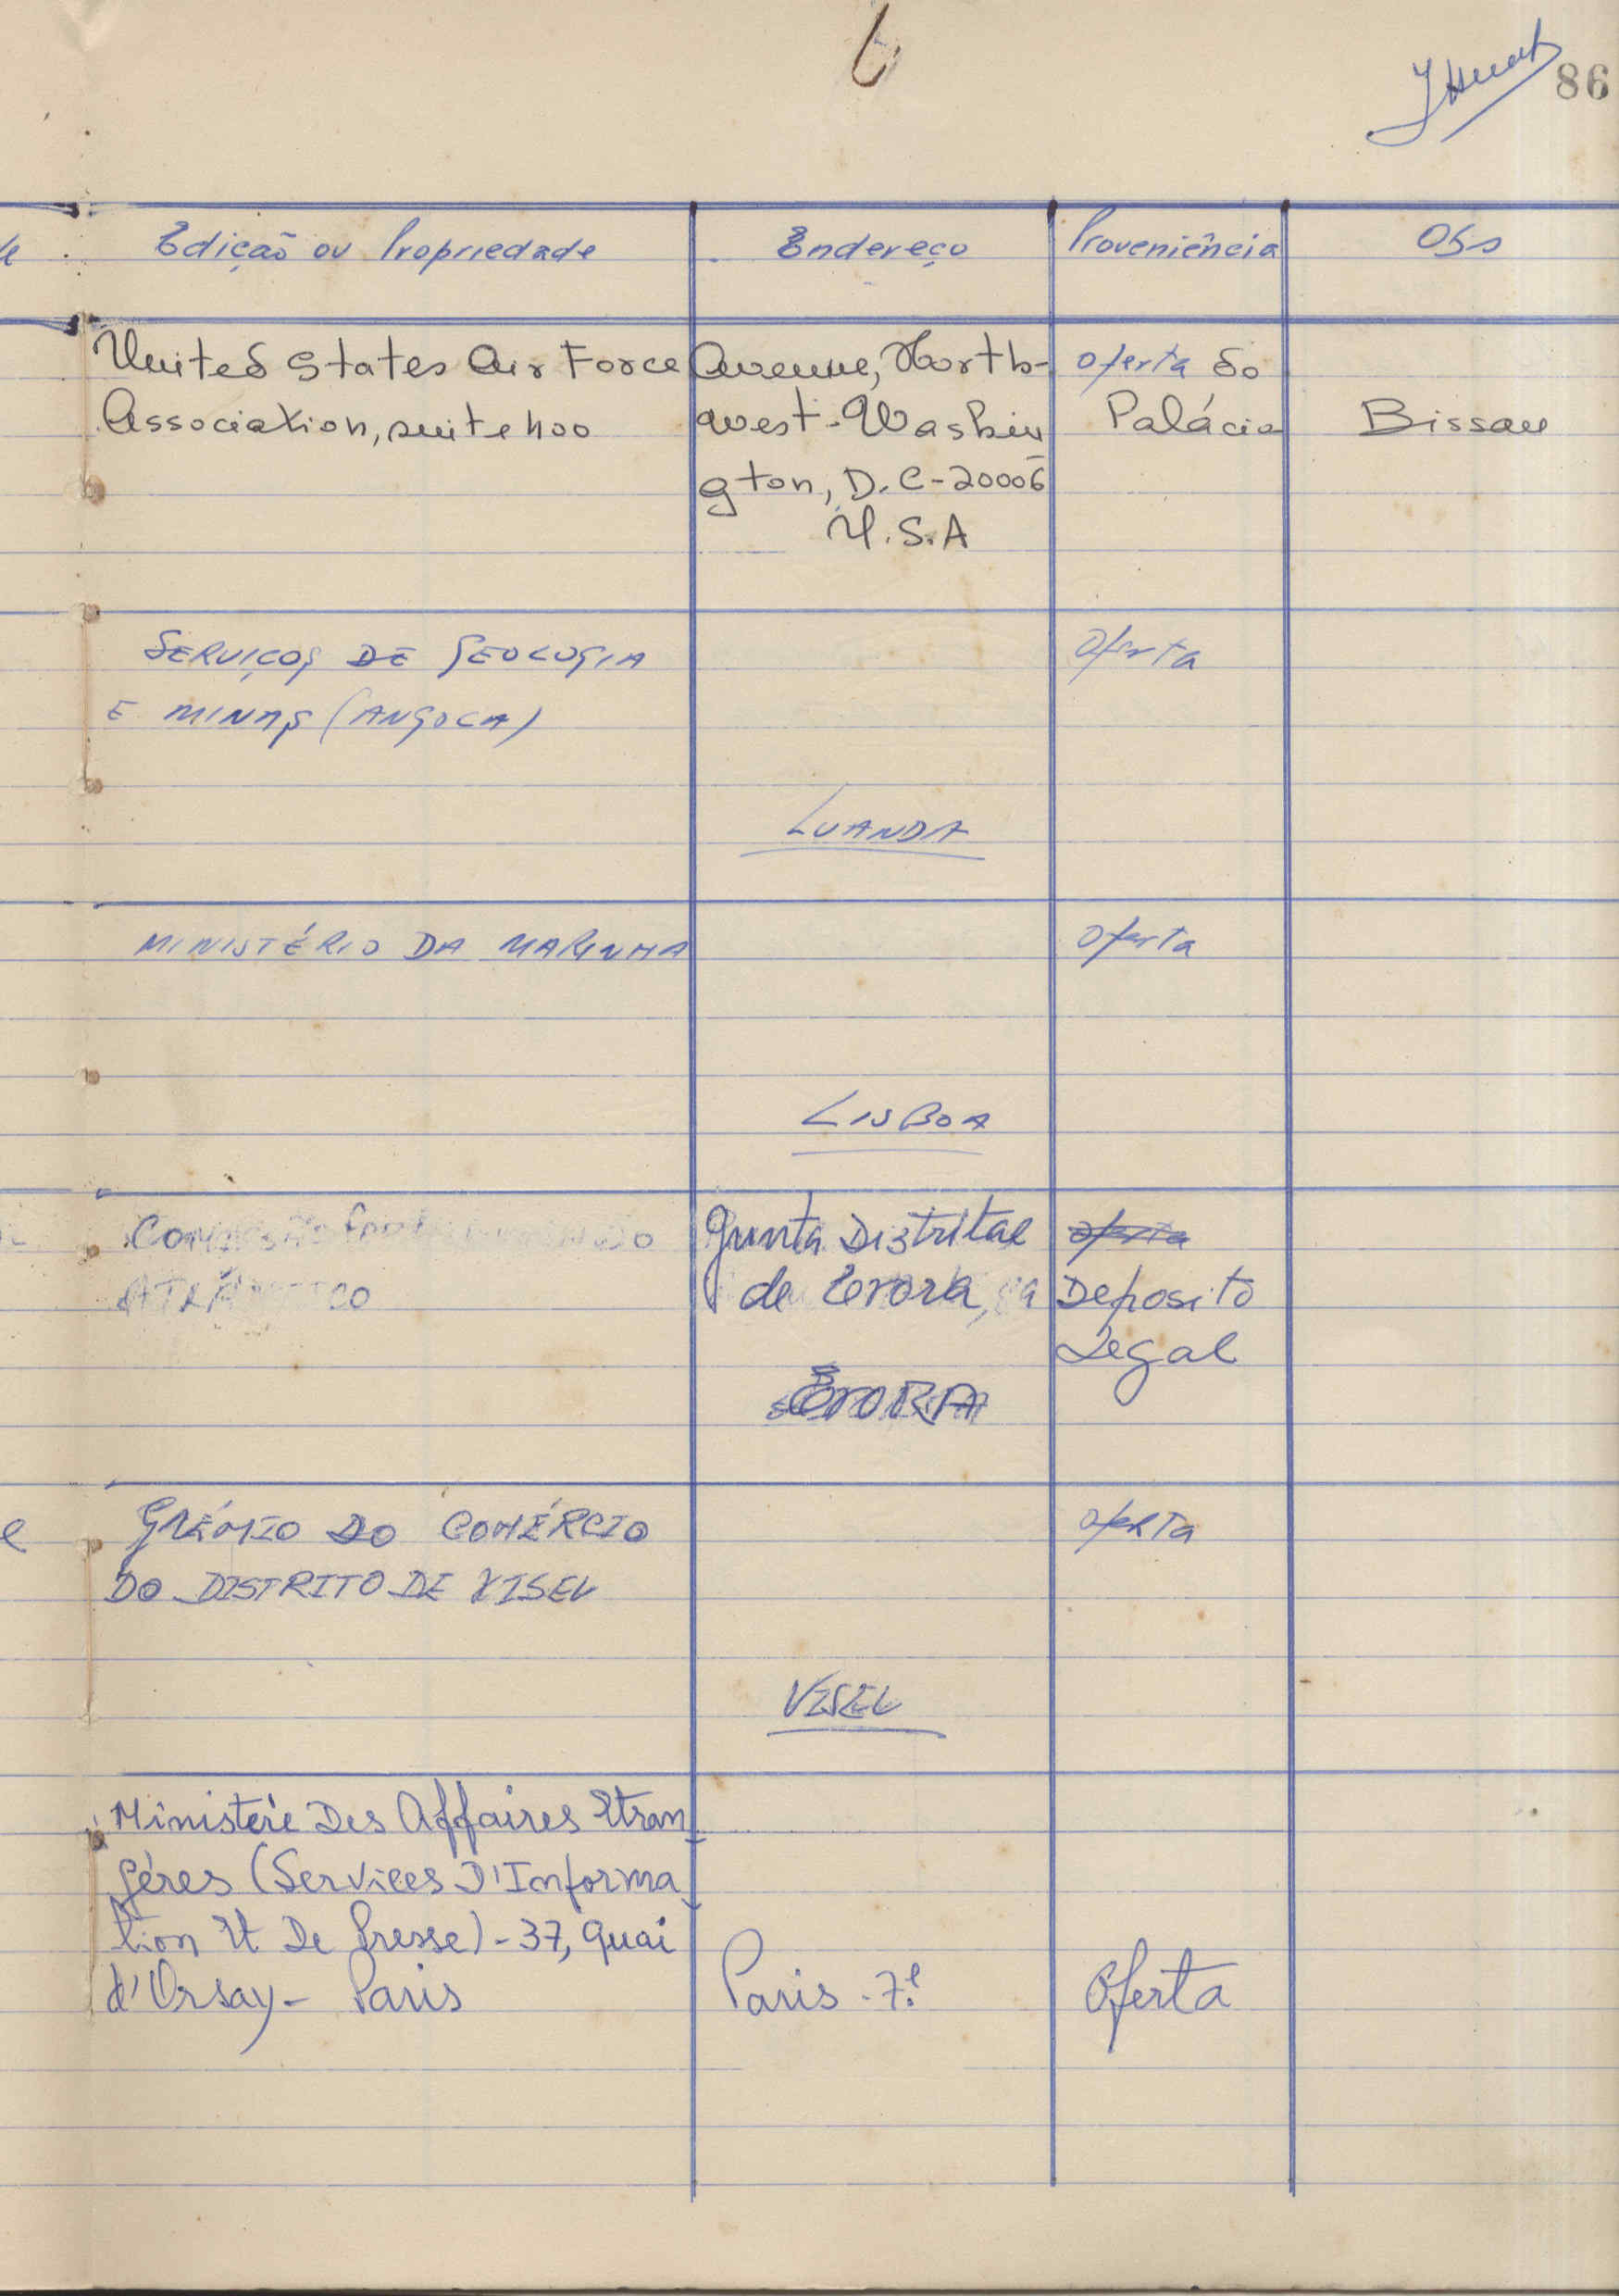 86
Edição ou Propriedade Endereço Proveniência Obs
United States Air Force Avenue, North- oferta do
Association, suite 400 west-Washin Palácio Bissau
gton, D.C-20006
U.S.A
SERVIÇOS DE GEOLOGIA oferta
E MINAS (ANGOLA)
LUANDA
MINISTÉRIO DA MARINHA oferta
LISBOA
Junta Distrital oferta
de Évora, Deposito
Legal
ÉVORA
GRÉMIO DO COMÉRCIO oferta
DO DISTRITO DE VISEU
VISEU
Ministère Des Affaires Etran
géres (Services D'Informa
tion Et De Presse)-37, quai
d'Orsay- Paris Paris-7e Oferta